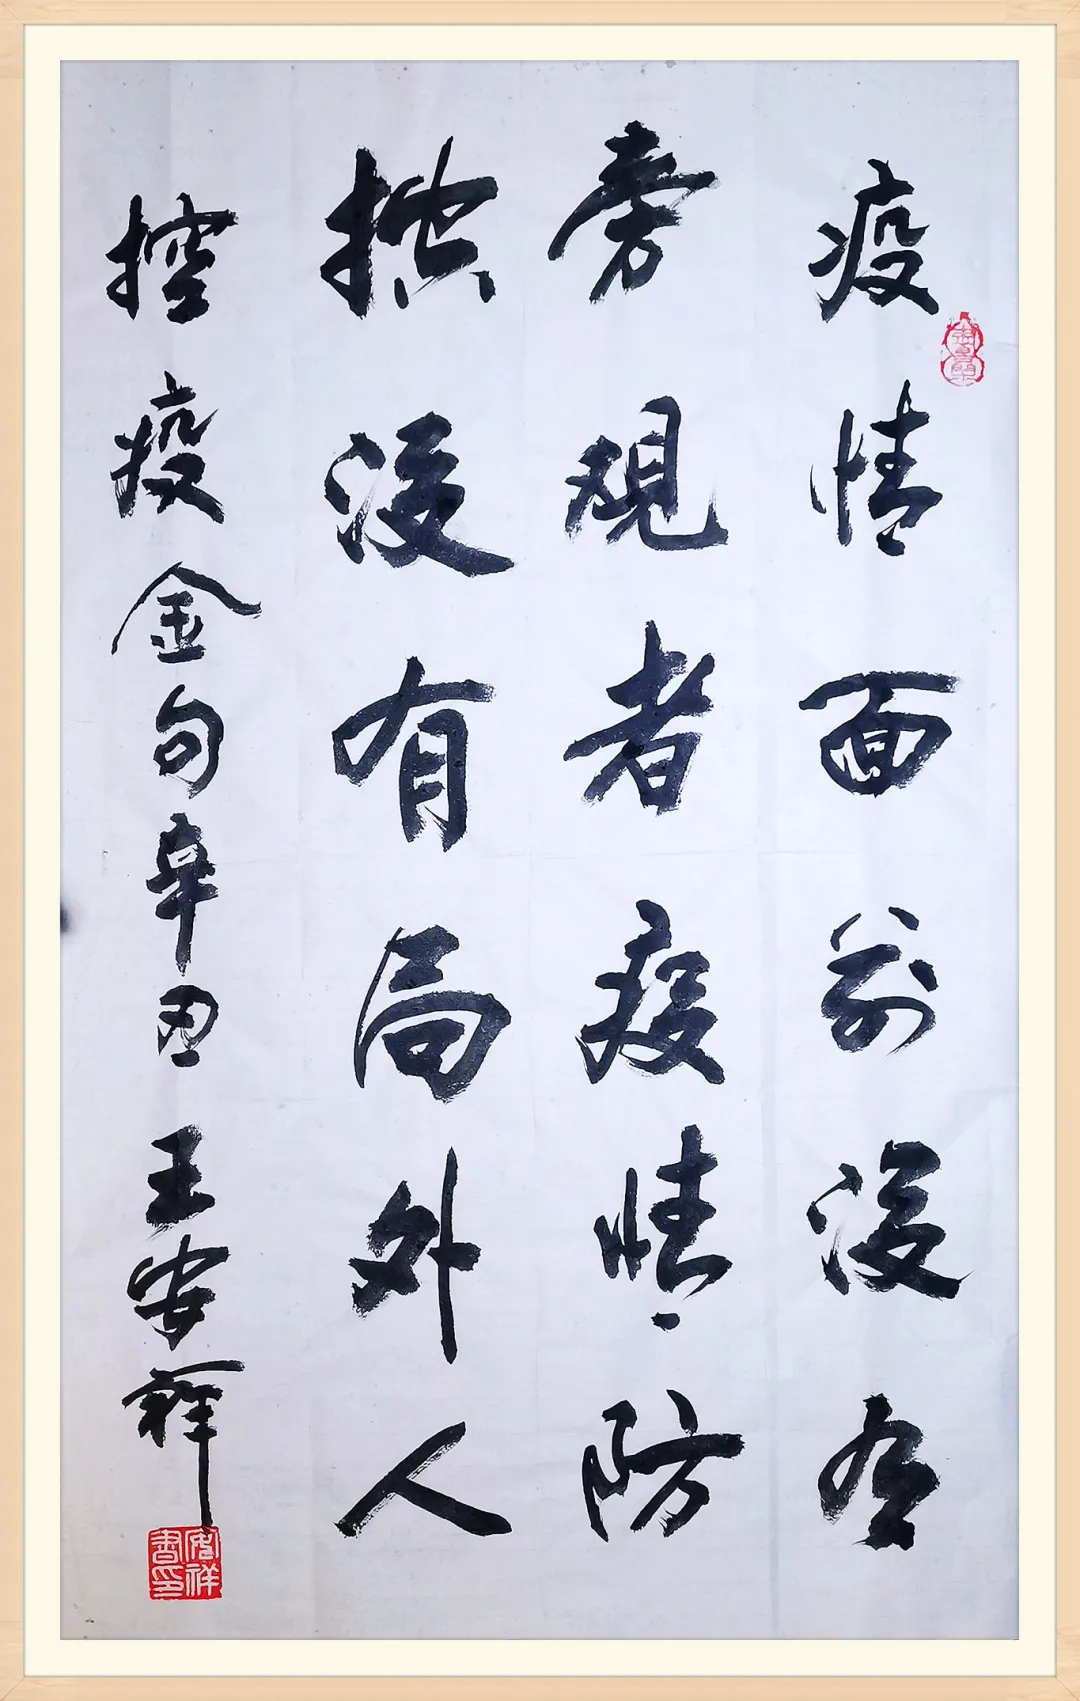 疫情面前没有
旁观者疫情防
控没有局外人
控疫金句辛丑王安祥
安祥书印